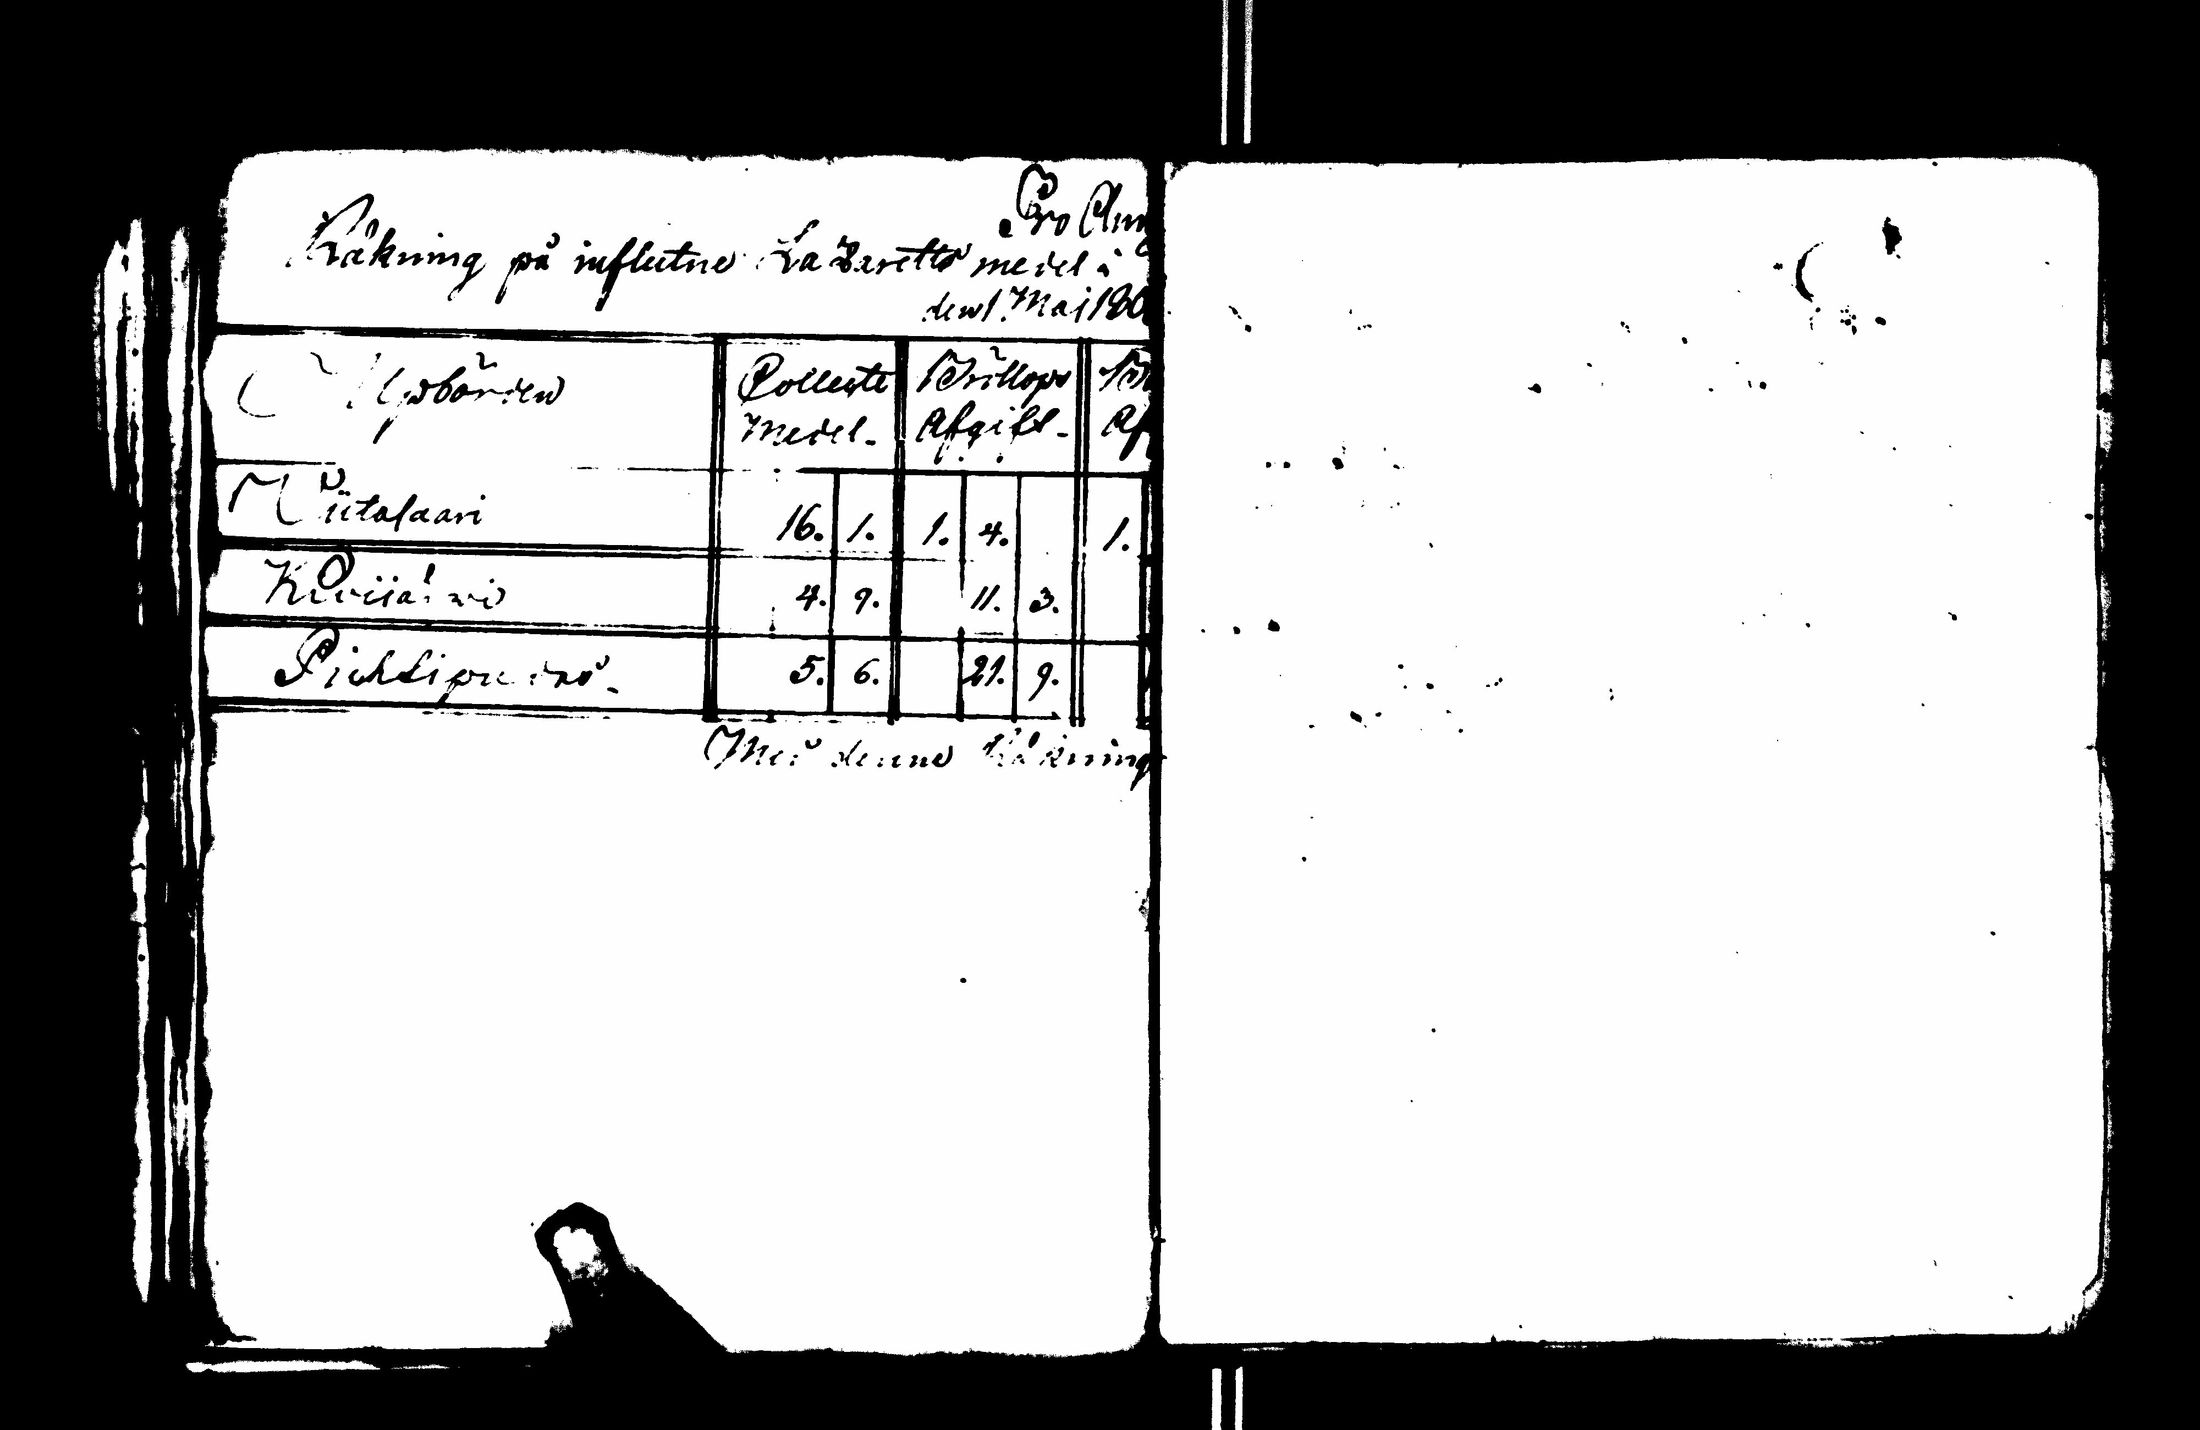 Pro Ann
Räkning på influtne Lazaretts medel i
den 1. Maj 180
Upbörden
Collecte Medel.
Bröllops Afgift.
Af
Kiitalaari 16. 1. 1. 4. 1.
4. 9. 11. 3.
Pichtipudas. 5. 6. 21. 9.
Med denne Räkning